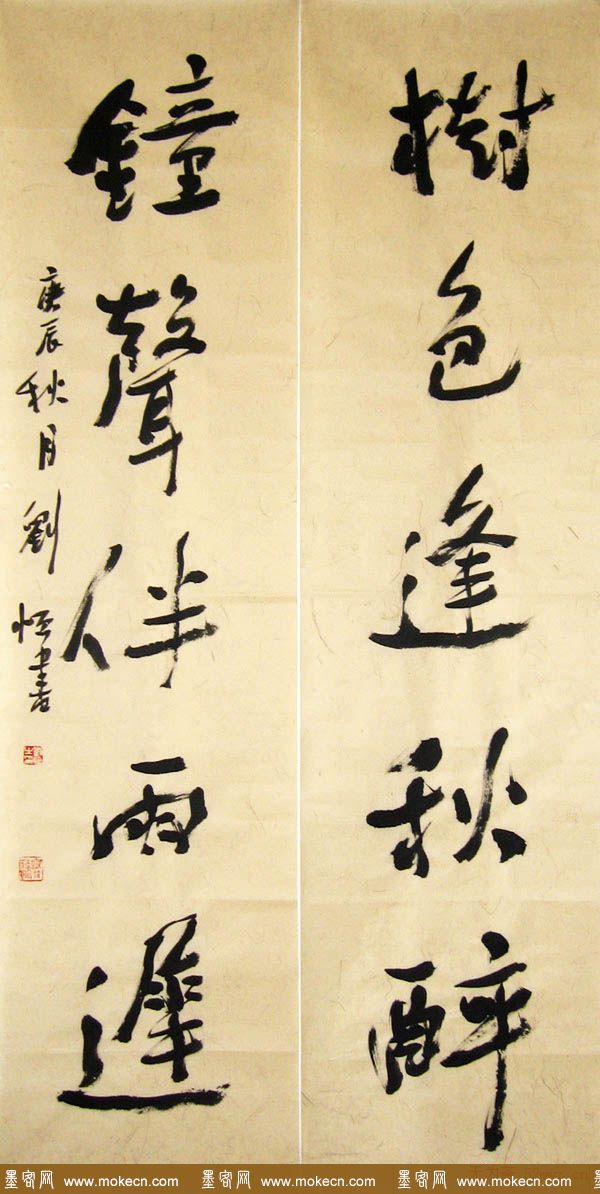 樹色逢秋醉
鐘聲伴雨遲
庚辰秋月劉恒書
墨客网 www.mokecn.com 墨客网 www.mokecn.com 墨客网 www.mokecn.com